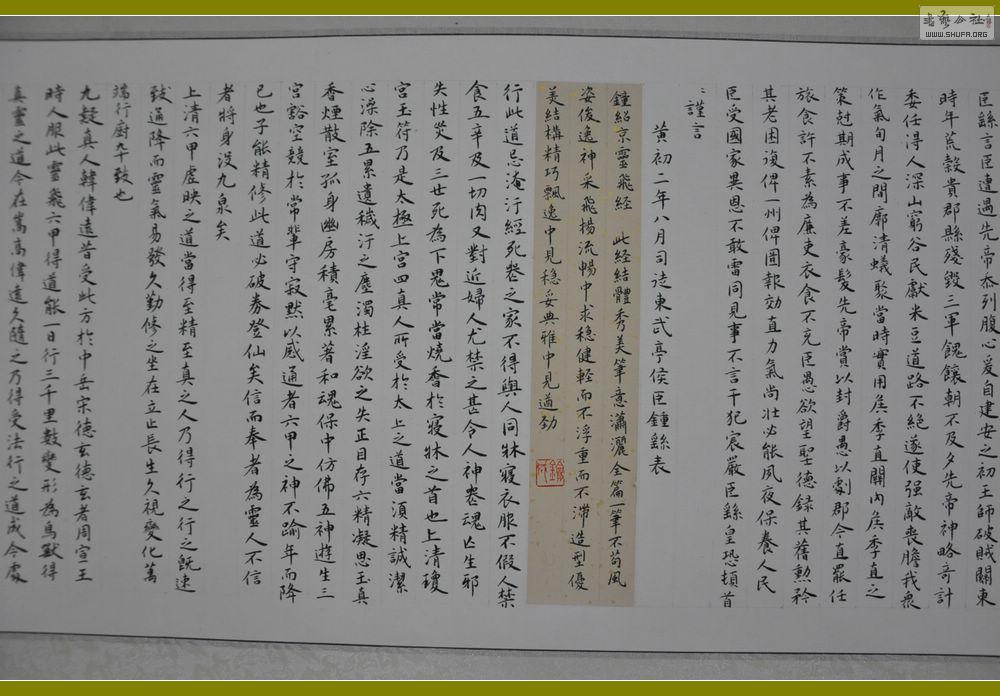 臣繇言臣遭遇先帝忝列腹心爰自建安之初王師破賊關東
時年荒穀貴郡縣殘毀三軍餽饟朝不及夕先帝神略奇計
委任得人深山窮谷民獻米豆道路不絕遂使强敵喪膽我衆
作氣旬月之間廓清蟻聚當時實用焦季直關內焦季直之
策尅期成事不差豪髮先帝賞以封爵愚以劇郡今直罷任
旅食許下素為廉吏衣食不充臣愚欲望聖德録其舊勲矜
其老困復俾一州俾圖報効直力氣尚壯必能夙夜保養人民
臣受國家異恩不敢雷同見事不言干犯宸嚴臣繇皇恐頓首
〻謹言
黃初二年八月司徒東武亭侯臣鍾繇表
鍾紹京靈飛經 此經結體秀美筆意瀟灑全篇一筆不苟風
姿俊逸神采飛揚流暢中求穩健輕而不浮重而不滯造型優
美結構精巧飄逸中見穩妥典雅中見遒劲
行此道忌淹汙經死喪之家不得與人同牀寢衣服不假人禁
食五辛及一切肉又對近婦人尤禁之甚令人神喪魂亡生邪
失性災及三世死為下鬼常當燒香於寢牀之首也上清瓊
宮玉符乃是太極上宮四真人所受於太上之道當須精誠潔
心澡除五累遺穢汙之塵濁杜淫欲之失正目存六精凝思玉真
香煙散室孤身幽房積毫累著和魂保中仿佛五神遊生三
宮豁空競於常輩守寂默以感通者六甲之神不踰年而降
己也子能精修此道必破券登仙矣信而奉者為靈人不信
者將身没九泉矣
上清六甲虛映之道當得至精至真之人乃得行之行之既速
致通降而靈氣易發久勤修之坐在立亡長生久視變化萬
端行廚卆致也
九疑真人韓偉遠昔受此方於中岳宋德玄德玄者周宣王
時人服此靈飛六甲得道能一日行三千里數變形為鳥獸得
真靈之道今在嵩高偉遠久隨之乃得受法行之道成今處
書藝公社
WWW.SHUFA.ORG